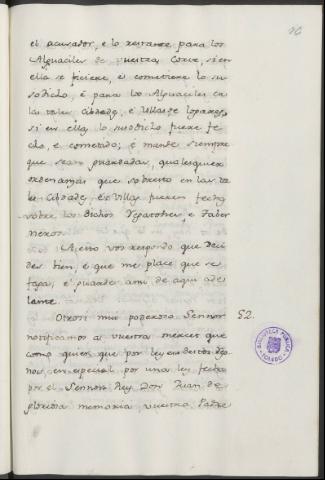 el acusador, e lo restante para los
Alguaciles de vuestra Corte, si en
ella se ficiere, e cometiere lo su-
sodicho, e para los Alguaciles en
las tales Cibdade, e Villas de logares,
si en ella lo susodicho fuere fe-
cho, e cometado; e mande siempre
que sean guardadas, qualesquier
ordenanzas que sobresto en las ta-
les Cibdades, e Villas fueren fechas
sobre los dichos Yeguateros, e Taber
neros.
A esto vos respondo que Deci-
des bien, e que me place que se
faga, e guarden ansi de aqui ade
lante.
Otrosi mui poderoso Sennor 52.
notificamos a vuestra mercet que
como quier que por ley en
nos, en especial por una ley fecha
por el Sennor Rey Don Juan de
gloriosa memoria vuestro Padre
BIBLIOTECA PUBLICA
TOLEDO